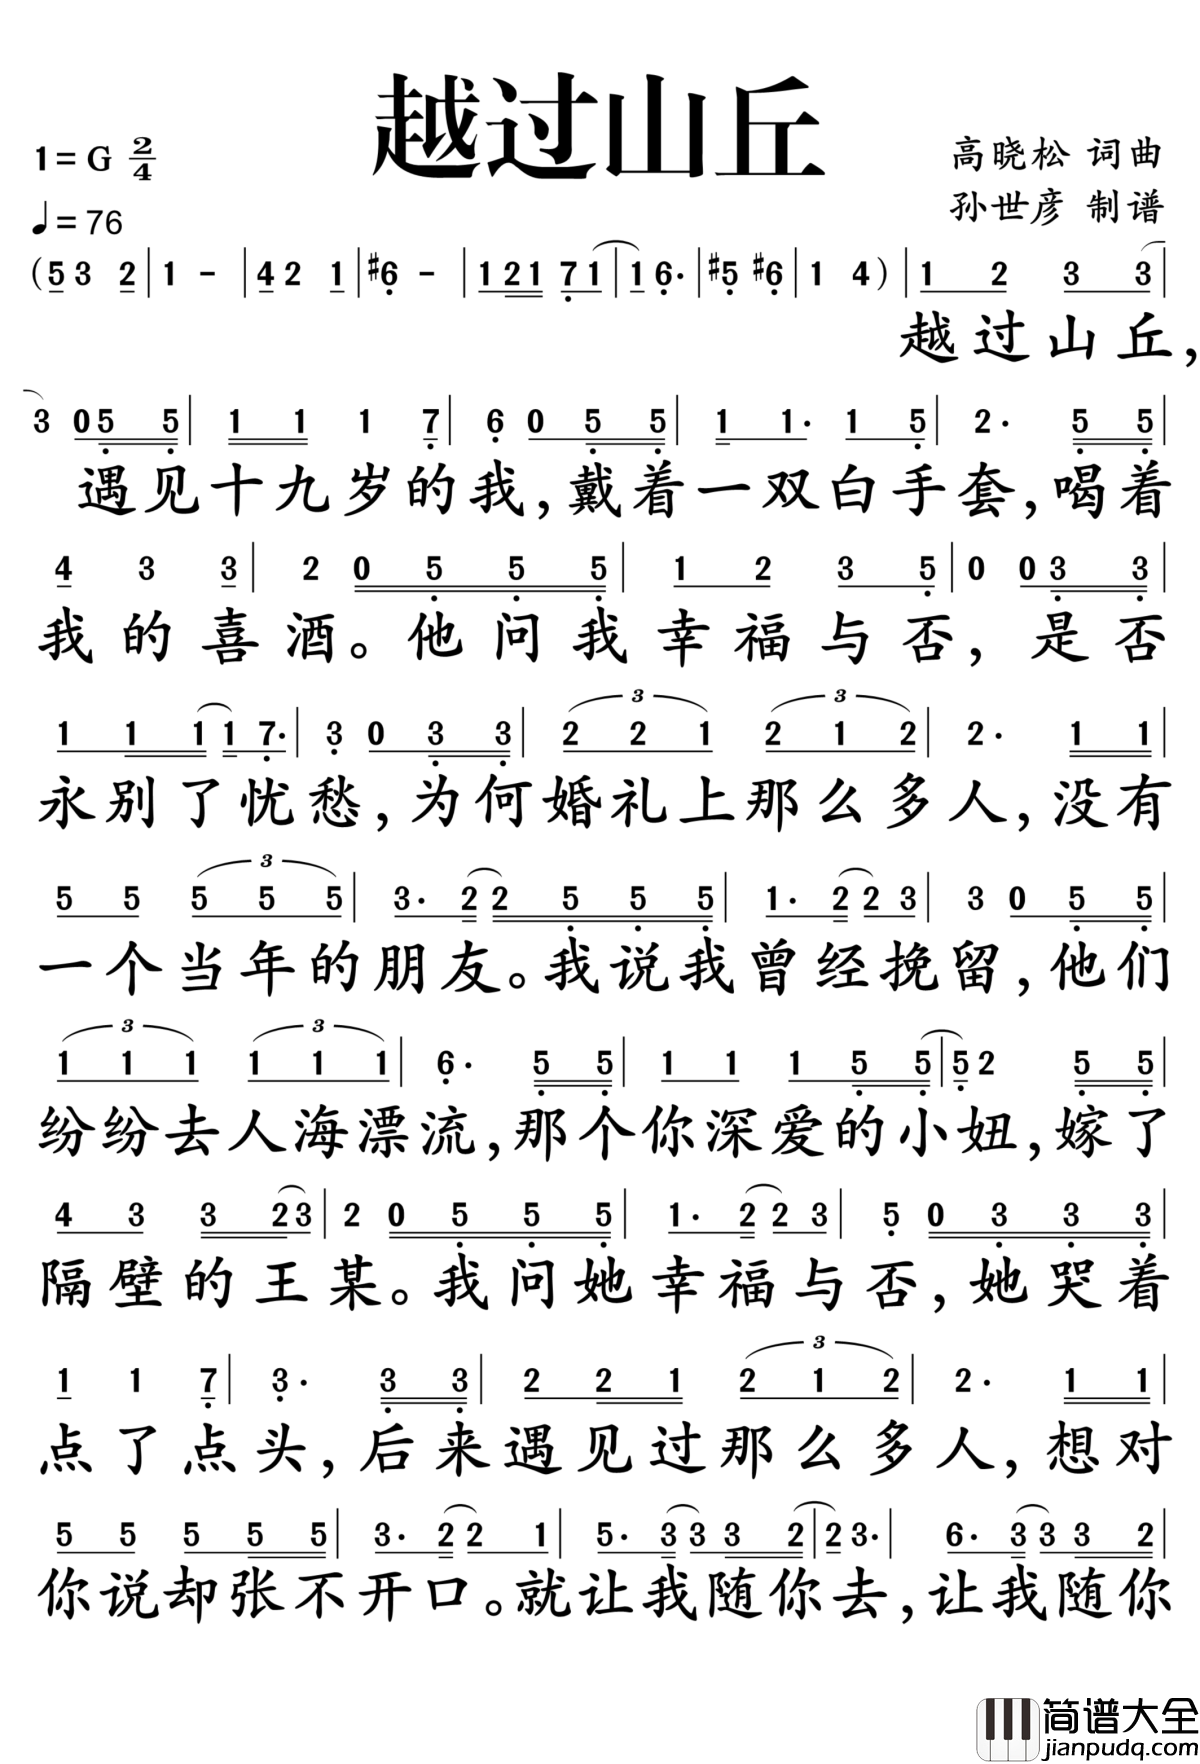 越过山丘
1=G 2/4
高晓松 词曲
♩=76
孙世彦 制谱
(5 3 2|1 -|4 2 1|#6 -|1 2 1 7 1|1 6·|#5 #6|1 4)|1 2 3 3|
越过山丘,
3 0 5 5|1 1 1 7|6 0 5 5|1 1· 1 5|2· 5 5|
遇见十九岁的我,戴着一双白手套,喝着
4 3 3|2 0 5 5 5|1 2 3 5|0 0 3 3|
我的喜酒。他问我幸福与否,是否
1 1 1 1 7·|3 0 3 3|2 2 1 2 1 2|2· 1 1|
3 3
永别了忧愁,为何婚礼上那么多人,没有
3
5 5 5 5 5|3· 2 2 5 5 5|1· 2 2 3|3 0 5 5|
一个当年的朋友。我说我曾经挽留,他们
3 3
1 1 1 1 1 1|6· 5 5|1 1 1 5 5|5 2 5 5|
纷纷去人海漂流,那个你深爱的小妞,嫁了
4 3 3 2 3|2 0 5 5 5|1· 2 2 3|5 0 3 3 3|
隔壁的王某。我问她幸福与否,她哭着
3
1 1 7|3· 3 3|2 2 1 2 1 2|2· 1 1|
点了点头,后来遇见过那么多人,想对
5 5 5 5 5|3· 2 2 1|5· 3 3 3 2|2 3·|6· 3 3 3 2|
你说却张不开口。就让我随你去,让我随你
简谱大全
jianpudq.com